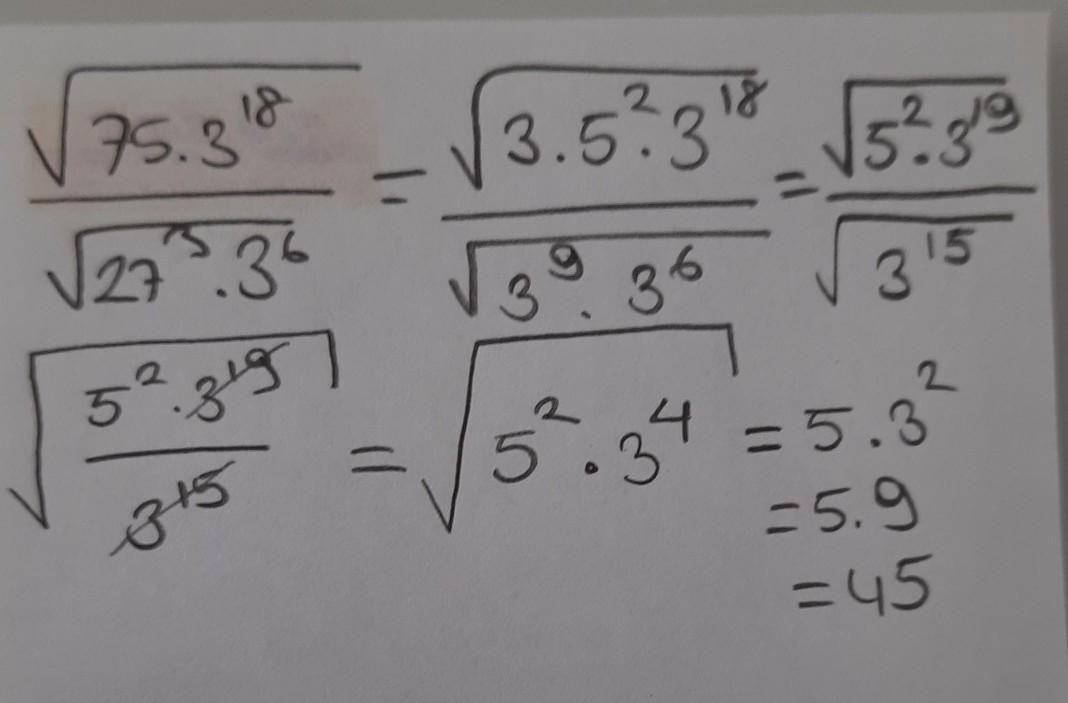 √(75.3¹⁸) / √(27³.3⁶) = √(3.5².3¹⁸) / √(3⁹.3⁶) = √(5².3¹⁹) / √(3¹⁵)
√(5².3¹⁹ / 3¹⁵) = √(5².3⁴) = 5.3²
=5.9
=45